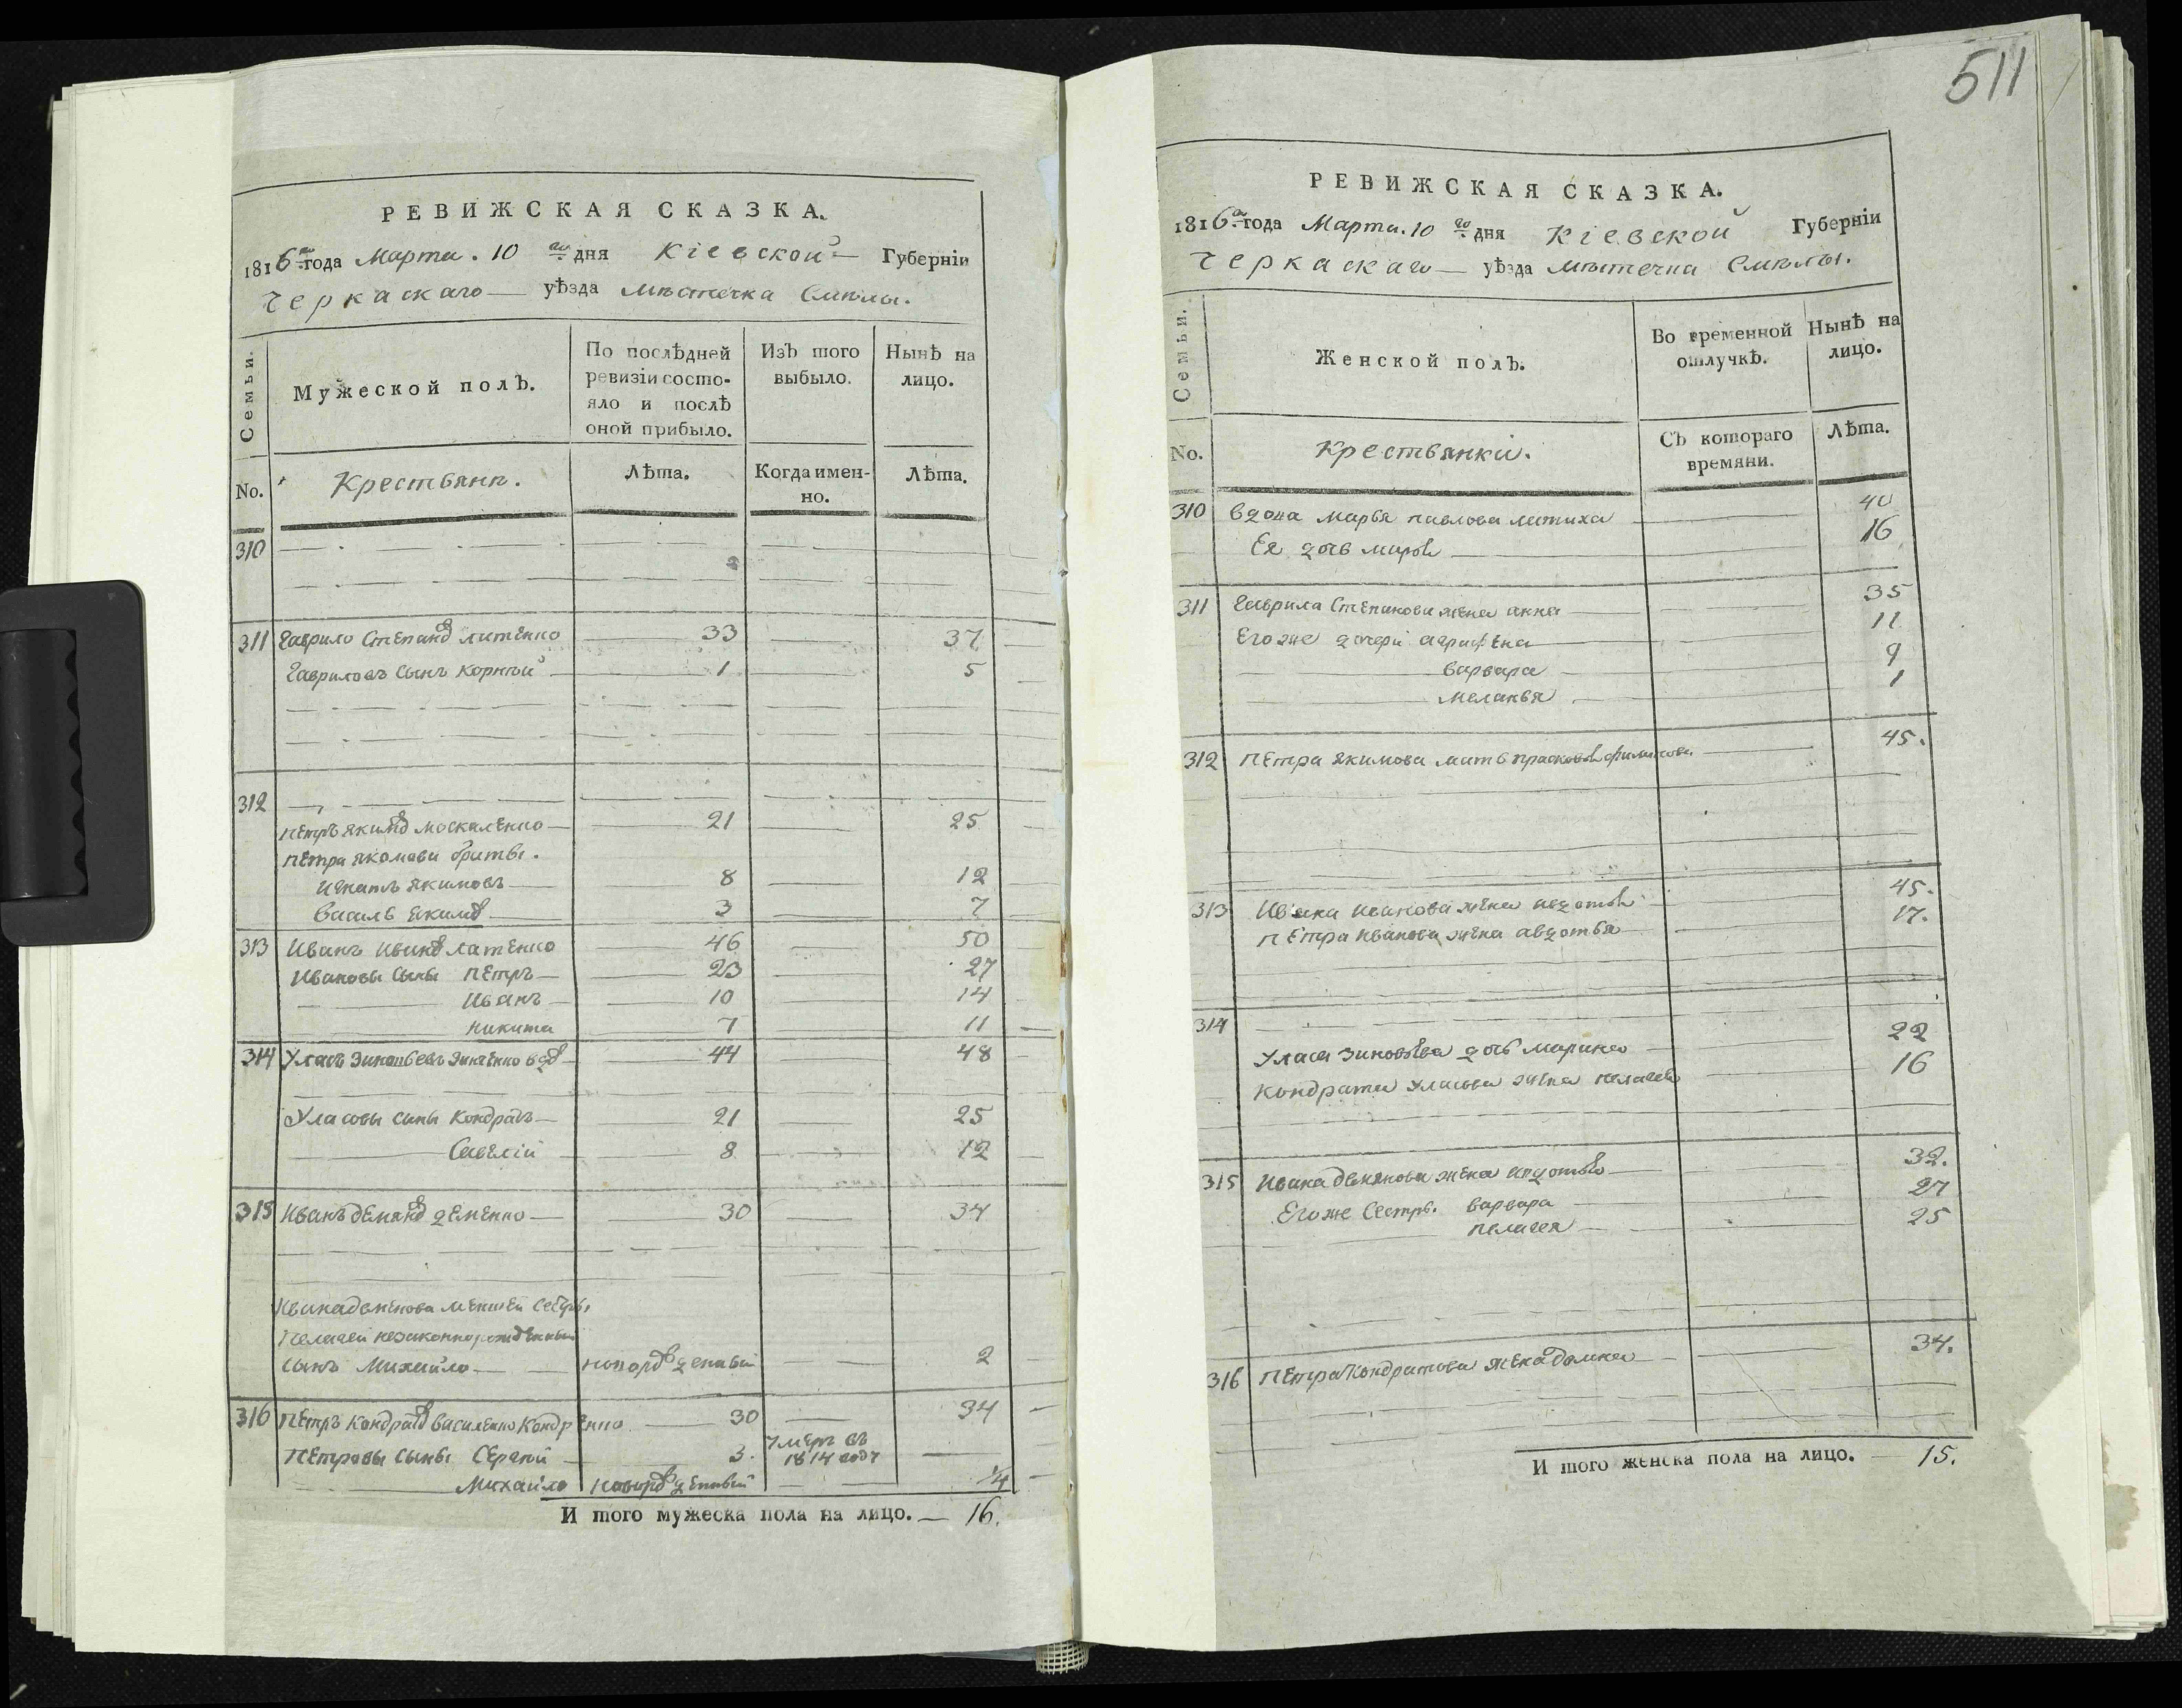 РЕВИЖСКАЯ СКАЗКА.
1816го года Марта. 10 го дня Кіевской Губерніи
Черкаскаго уѣзда мѣстечка Смѣлы.
Семьи.
Мужеской полъ.
По послѣдней ревизіи состояло и послѣ оной прибыло.
Изъ того выбыло.
Нынѣ на лицо.
No.
Крестьянъ.
Лѣта.
Когда именно.
Лѣта.
310
311 Гаврило Степановъ литенко 33 37
Гавриловъ сынъ Корнѣй 1 5
312
Петръ якимовъ москаленко 21 25
Петра якимова братьи.
Игнатъ якимовъ 8 12
Василь якимовъ 3 7
313 Иванъ Ивановъ латенко 46 50
Ивановы сыны Петръ 23 27
Иванъ 10 14
никита 7 11
314 Уласъ Зиновьевъ Зинченко вдовъ 44 48
Уласовы сыны Кондратъ 21 25
Савелій 8 12
315 Иванъ демяновъ деменко 30 34
Ивана деменова меншей сестры
Пелагеи незаконнорожденный
сынъ Михайло новорожденный 2
316 Петръ Кондратовъ василенко Кондренко 30 34
Петровы сыны Сергей 3. умеръ въ 1814 году
Михайло новорожденный 1/4
И того мужеска пола на лицо. 16.
511
РЕВИЖСКАЯ СКАЗКА.
1816го года Марта. 10 го дня Кіевской Губерніи
Черкаскаго уѣзда мѣстечка Смѣлы.
Семьи.
Женской полъ.
Во временной отлучкѣ.
Нынѣ на лицо.
No.
Крестьянки.
Съ котораго времяни.
Лѣта.
310 вдова марья павлова литиха 40
Ея дочь 16
311 Гаврила Степанова жена анна 35
Его же дочери агрифена 11
варвара 9
меланья 1
312 Петра якимова мать прасковья филипова 45.
313 Ивана Иванова жена авдотья 45.
Петра Иванова жена авдотья 17.
314
Уласа Зиновьева дочь марина 22
Кондрата Уласова жена пелагея 16
315 Ивана демянова жена авдотья 32.
Его же сестры. варвара 27
пелагея 25
316 Петра Кондратова жена домна 34.
И того женска пола на лицо. 15.